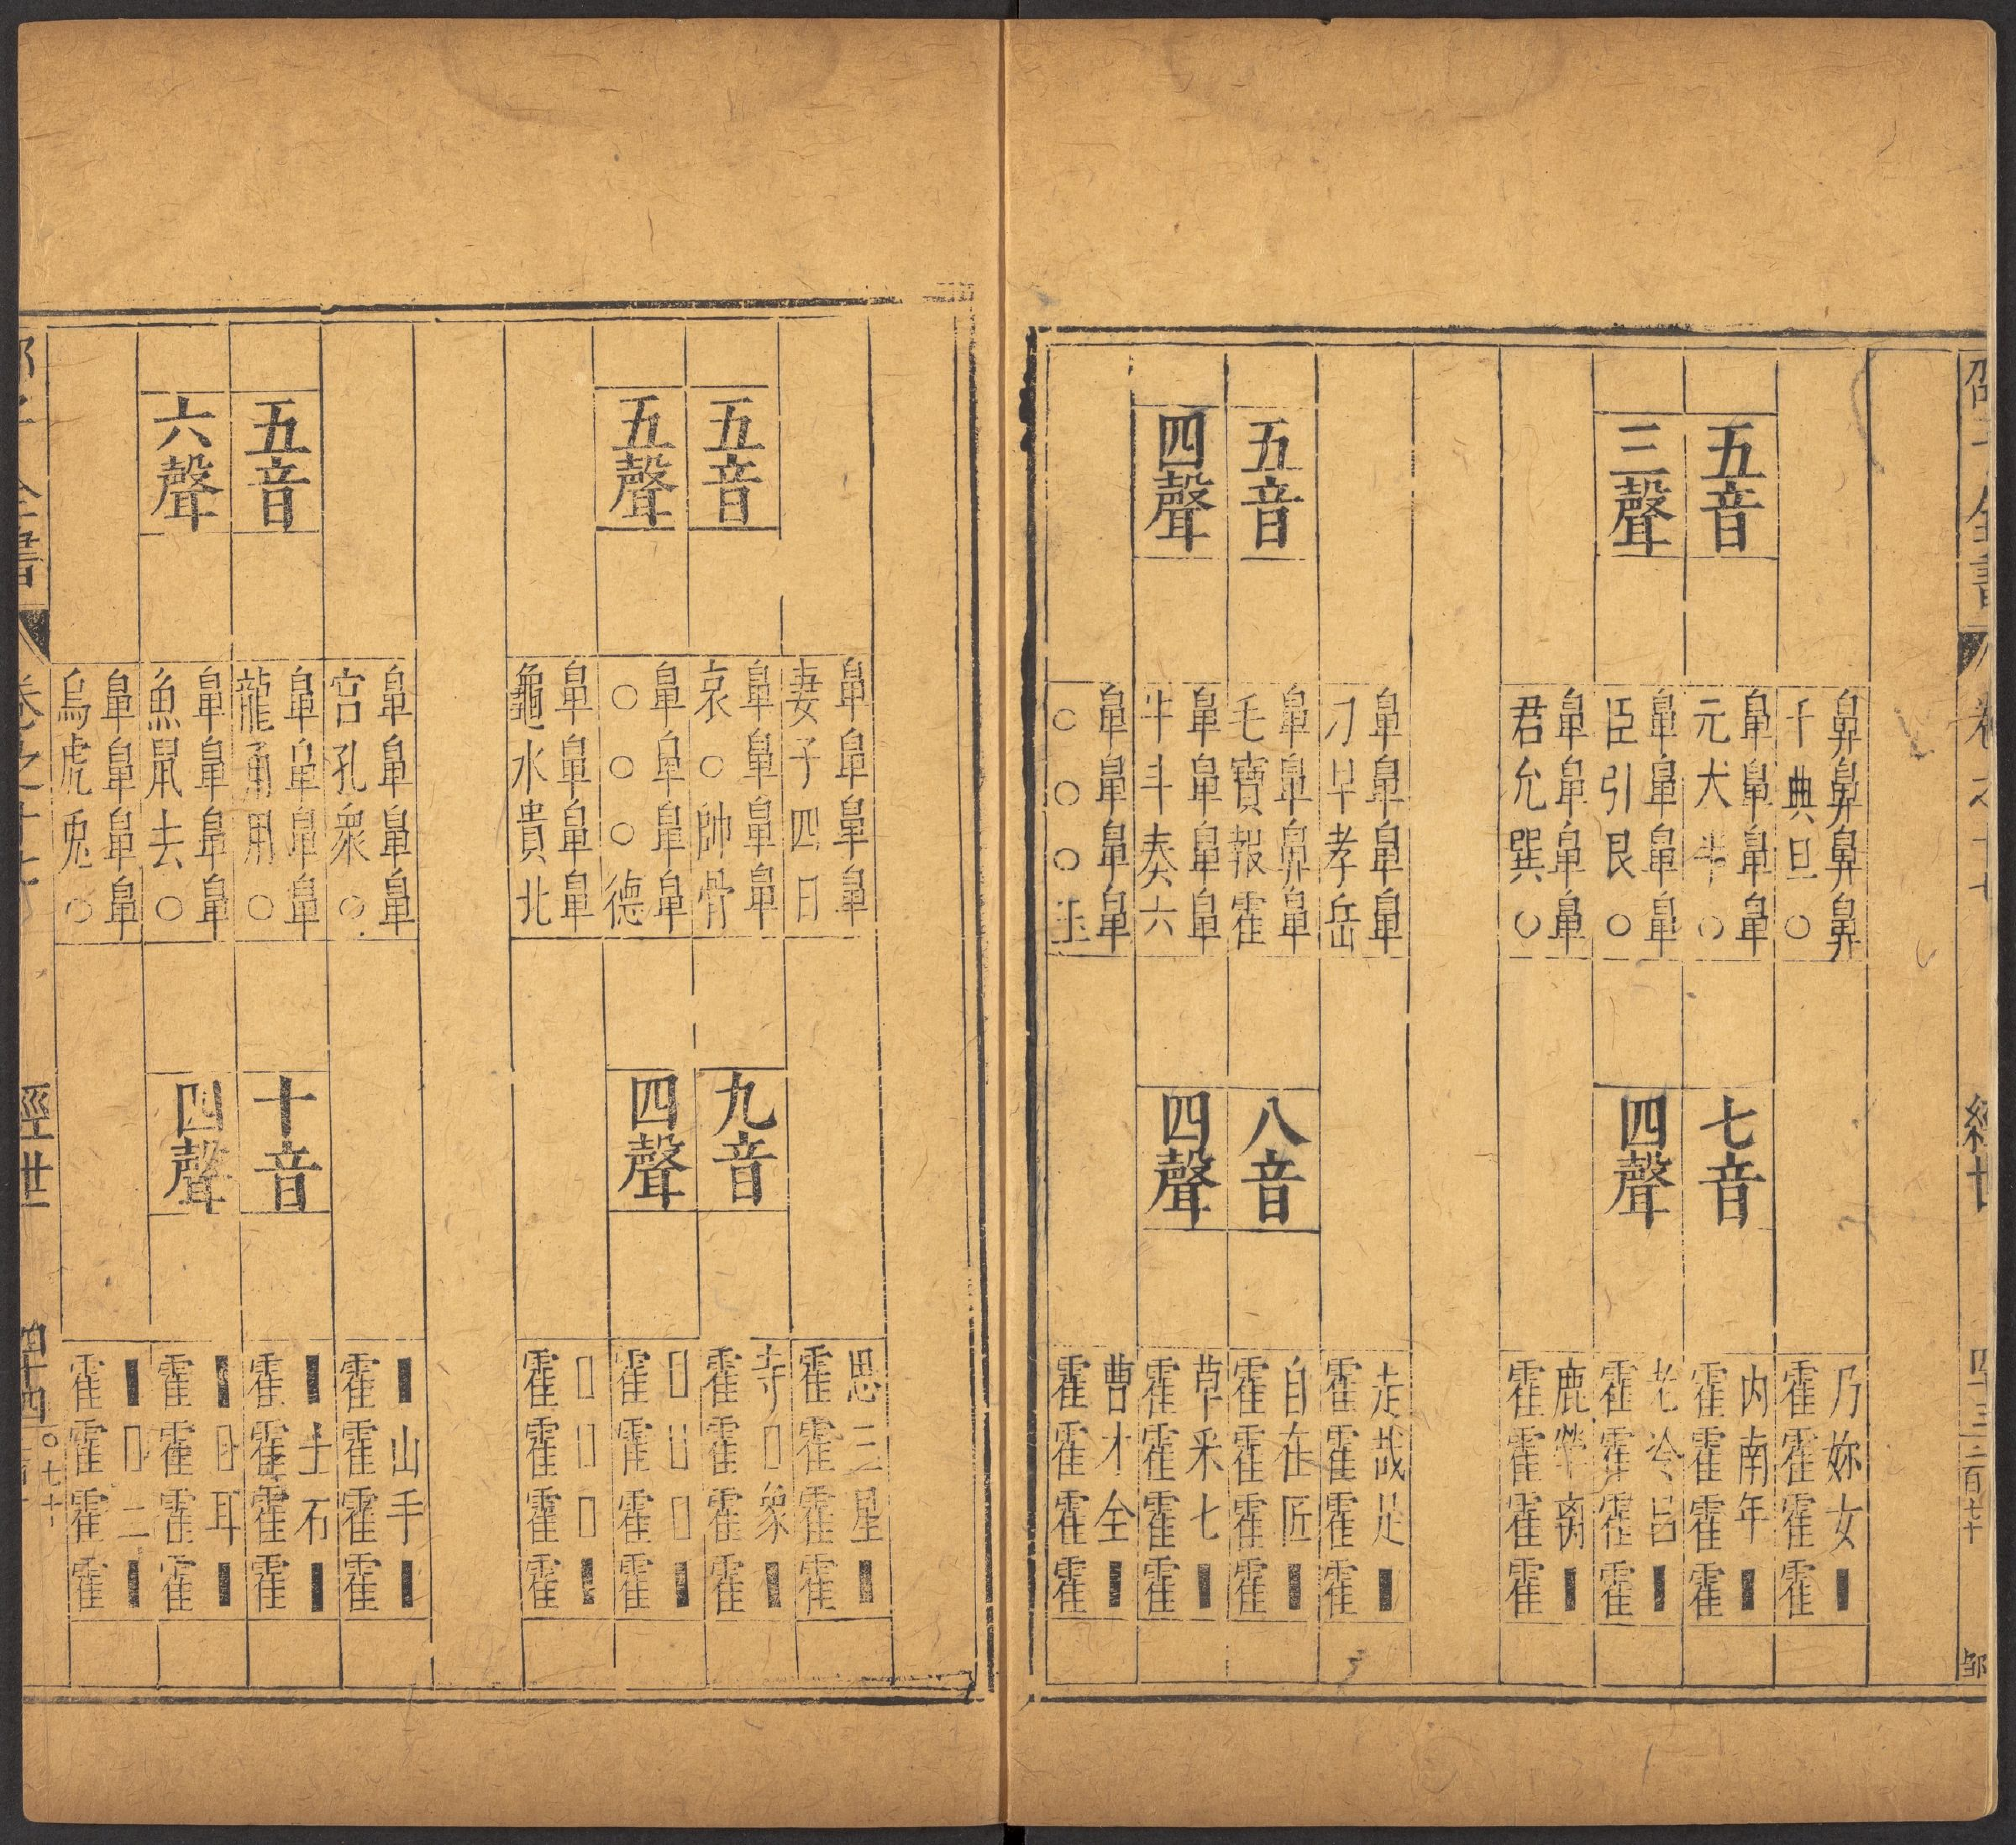 邵子全書 卷之十七 經世 四十三 二百七十
五音
三聲
鼻鼻鼻鼻
千典旦○
鼻鼻鼻鼻
元犬半○
鼻鼻鼻鼻
臣引艮○
鼻鼻鼻鼻
君允巽○
七音
四聲
乃妳女■
霍霍霍霍
内南年■
霍霍霍霍
老冷呂■
霍霍霍霍
鹿犖离■
霍霍霍霍
五音
四聲
鼻鼻鼻鼻
刀早孝岳
鼻鼻鼻鼻
毛寶報霍
鼻鼻鼻鼻
牛斗奏六
鼻鼻鼻鼻
○○○玉
八音
四聲
走哉足■
霍霍霍霍
自在匠■
霍霍霍霍
草采七■
霍霍霍霍
曹才全■
霍霍霍霍
五音
五聲
鼻鼻鼻鼻
妻子四日
鼻鼻鼻鼻
衰○帥骨
鼻鼻鼻鼻
○○○德
鼻鼻鼻鼻
龜水貴北
九音
四聲
思三星■
霍霍霍霍
寺□象■
霍霍霍霍
□□□■
霍霍霍霍
□□□■
霍霍霍霍
五音
六聲
鼻鼻鼻鼻
宫孔衆○
鼻鼻鼻鼻
龍甬用○
鼻鼻鼻鼻
魚鼠去○
鼻鼻鼻鼻
烏虎兎○
十音
四聲
■山手■
霍霍霍霍
■士石■
霍霍霍霍
■□耳■
霍霍霍霍
■□二■
霍霍霍霍
全書 卷之十七 經世 四十四